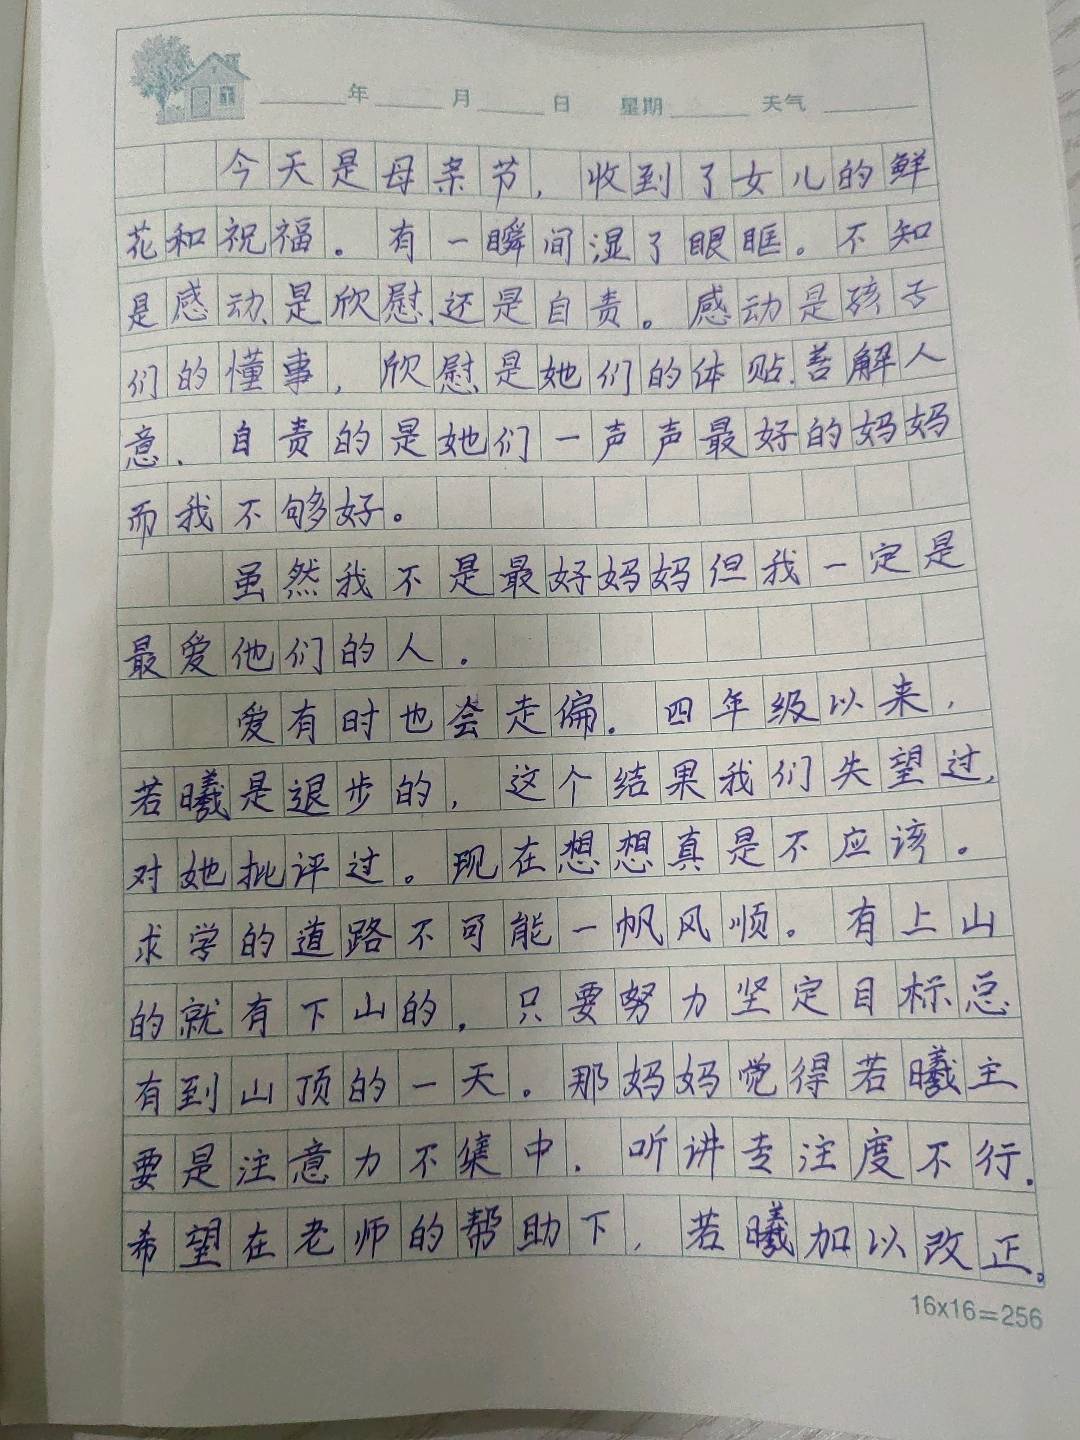 年 月 日 星期 天气
今天是母亲节，收到了女儿的鲜
花和祝福。有一瞬间湿了眼眶。不知
是感动、是欣慰、还是自责。感动是孩子
们的懂事，欣慰是她们的体贴、善解人
意、自责的是她们一声声最好的妈妈
而我不够好。
虽然我不是最好妈妈但我一定是
最爱他们的人。
爱有时也会走偏。四年级以来，
若曦是退步的，这个结果我们失望过，
对她批评过。现在想想真是不应该。
求学的道路不可能一帆风顺。有上山
的就有下山的，只要努力坚定目标总
有到山顶的一天。那妈妈觉得若曦主
要是注意力不集中．听讲专注度不行．
希望在老师的帮助下，若曦加以改正。
16x16=256